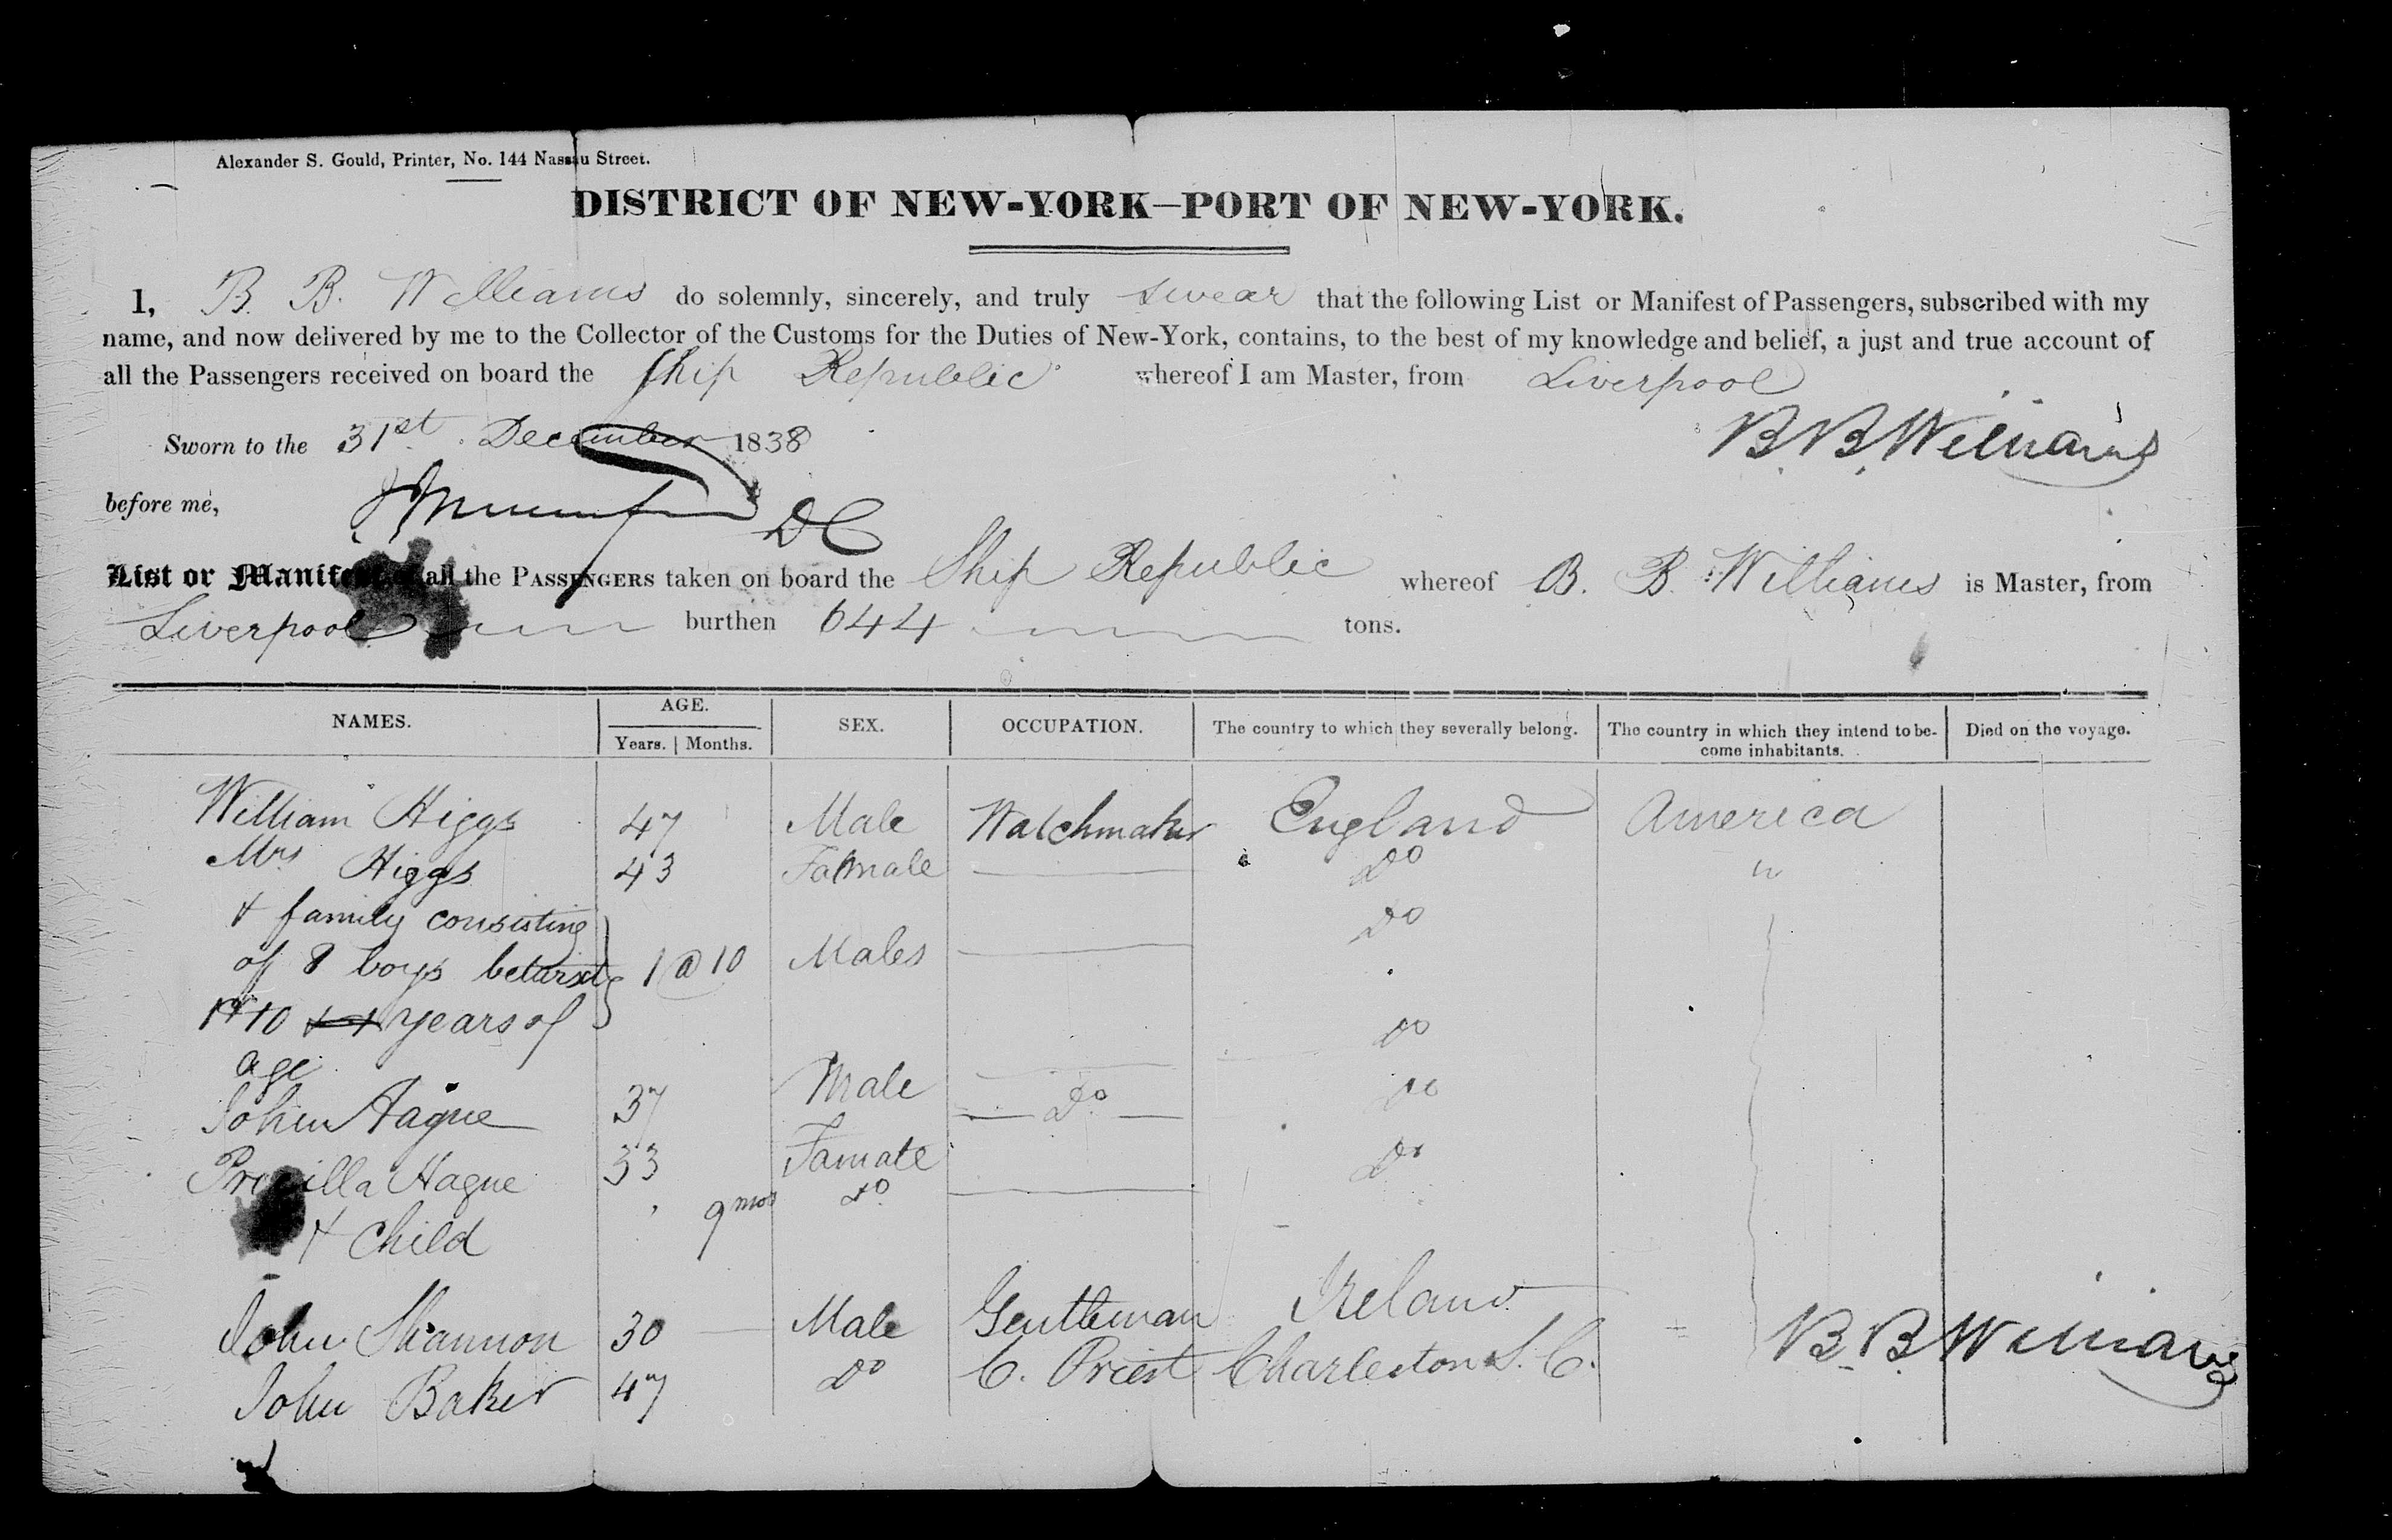 Alexander S. Gould, Printer, No. 144 Nassau Street.
DISTRICT OF NEW-YORK—PORT OF NEW-YORK.
I, B. B. Williams do solemnly, sincerely, and truly swear that the following List or Manifest of Passengers, subscribed with my
name, and now delivered by me to the Collector of the Customs for the Duties of New-York, contains, to the best of my knowledge and belief, a just and true account of
all the Passengers received on board the Ship Republic whereof I am Master, from Liverpool
Sworn to the 31st December 1838 B. B. Williams
before me, DC
List or Manifest of all the PASSENGERS taken on board the Ship Republic whereof B. B. Williams is Master, from
Liverpool burthen 644 tons.
NAMES. AGE. Years. Months. SEX. OCCUPATION. The country to which they severally belong. The country in which they intend to be-come inhabitants. Died on the voyage.
William Higgs 47 Male Watchmaker England America
Mrs Higgs 43 Famale Do "
& family consisting Do
of 8 boys betwixt 1 @ 10 Males
1 & 10 years of Do
age
John Hague 37 Male Do Do
Priscilla Hague 33 Famale Do
& Child 9 mos Do
John Shannon 30 Male Gentleman Ireland
John Baker 47 Do C. Priest Charleston S. C.
B. B. Williams